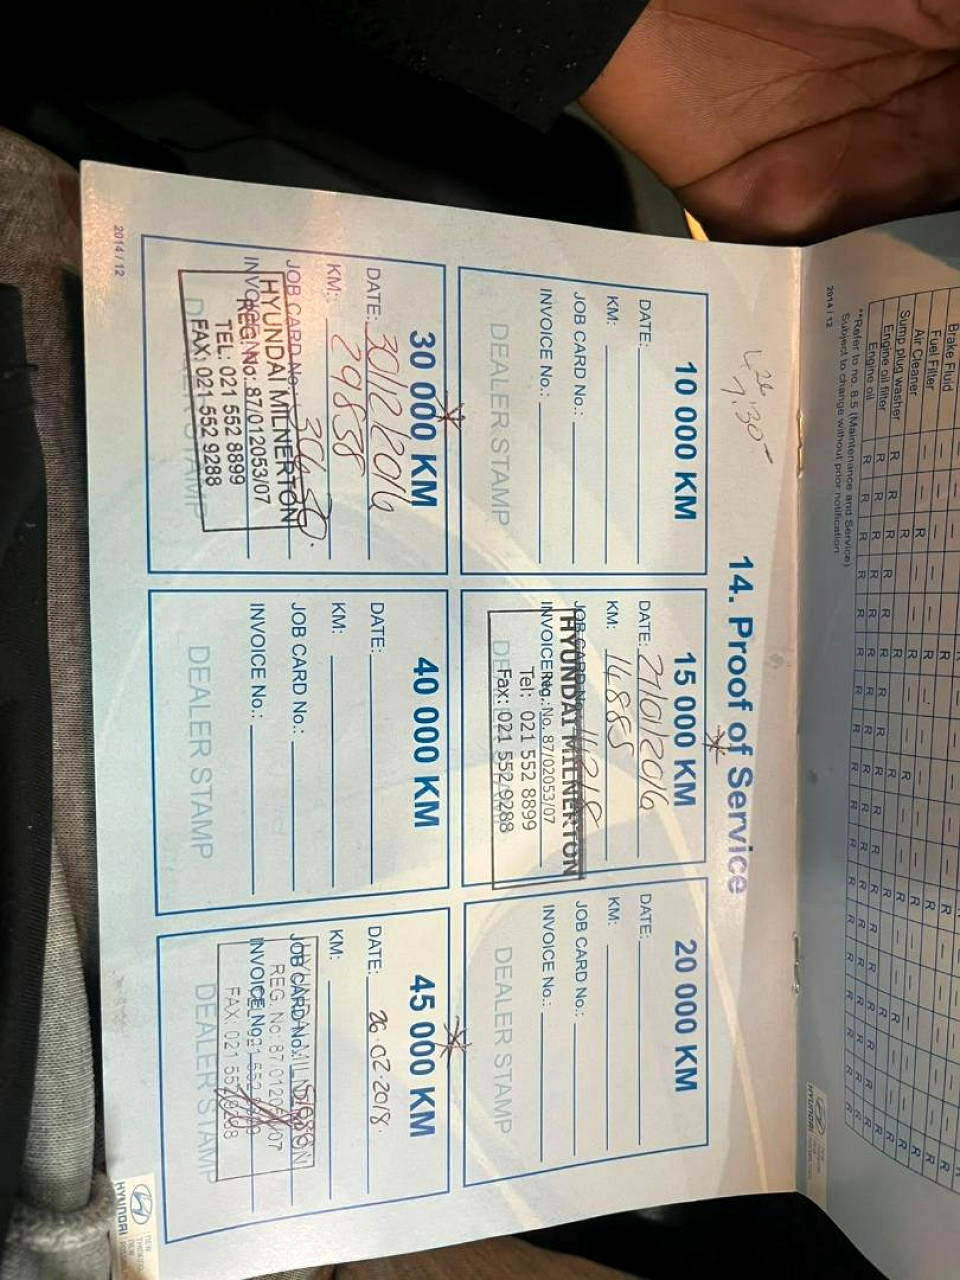 Brake Fluid
Fuel Filter
Air Cleaner
Sump plug washer
Engine oil filter
Engine oil
**Refer to no. 8.5 (Maintenance and Service)
Subject to change without prior notification
2014 / 12
HYUNDAI
14. Proof of Service
10 000 KM
DATE:
KM:
JOB CARD No.:
INVOICE No.:
DEALER STAMP
15 000 KM
DATE: 27/01/2016
KM: 14885
JOB CARD No.:
INVOICE No.:
DEALER STAMP
HYUNDAI MILNERTON
Reg. No. 87/02053/07
Tel: 021 552 8899
Fax: 021 552 9288
20 000 KM
DATE:
KM:
JOB CARD No.:
INVOICE No.:
DEALER STAMP
30 000 KM
DATE: 30/12/2016
KM: 29888
JOB CARD No.:
INVOICE No.:
DEALER STAMP
HYUNDAI MILNERTON
REG No: 87/012053/07
TEL: 021 552 8899
FAX: 021 552 9288
40 000 KM
DATE:
KM:
JOB CARD No.:
INVOICE No.:
DEALER STAMP
45 000 KM
DATE: 26.02.2018
KM:
JOB CARD No.:
INVOICE No.:
DEALER STAMP
2014 / 12
HYUNDAI
NEW
THINKING